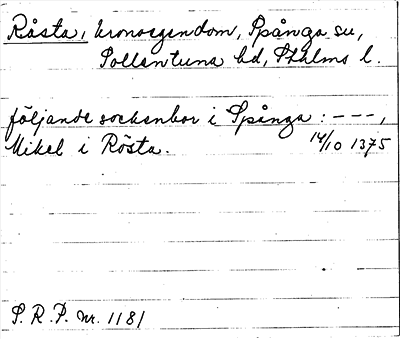 Råsta, kronoegendom, Spånga sn,
Sollentuna hd, Sthlms l.
följande sockenbor i Spånga : ---,
Mikel i Rösta. 14/10 1375
S. R. P. nr. 1181